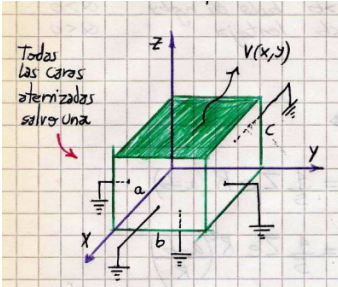 Todas
las caras
aterrizadas
salvo una
Z
V(x,y)
Y
X
a
b
c